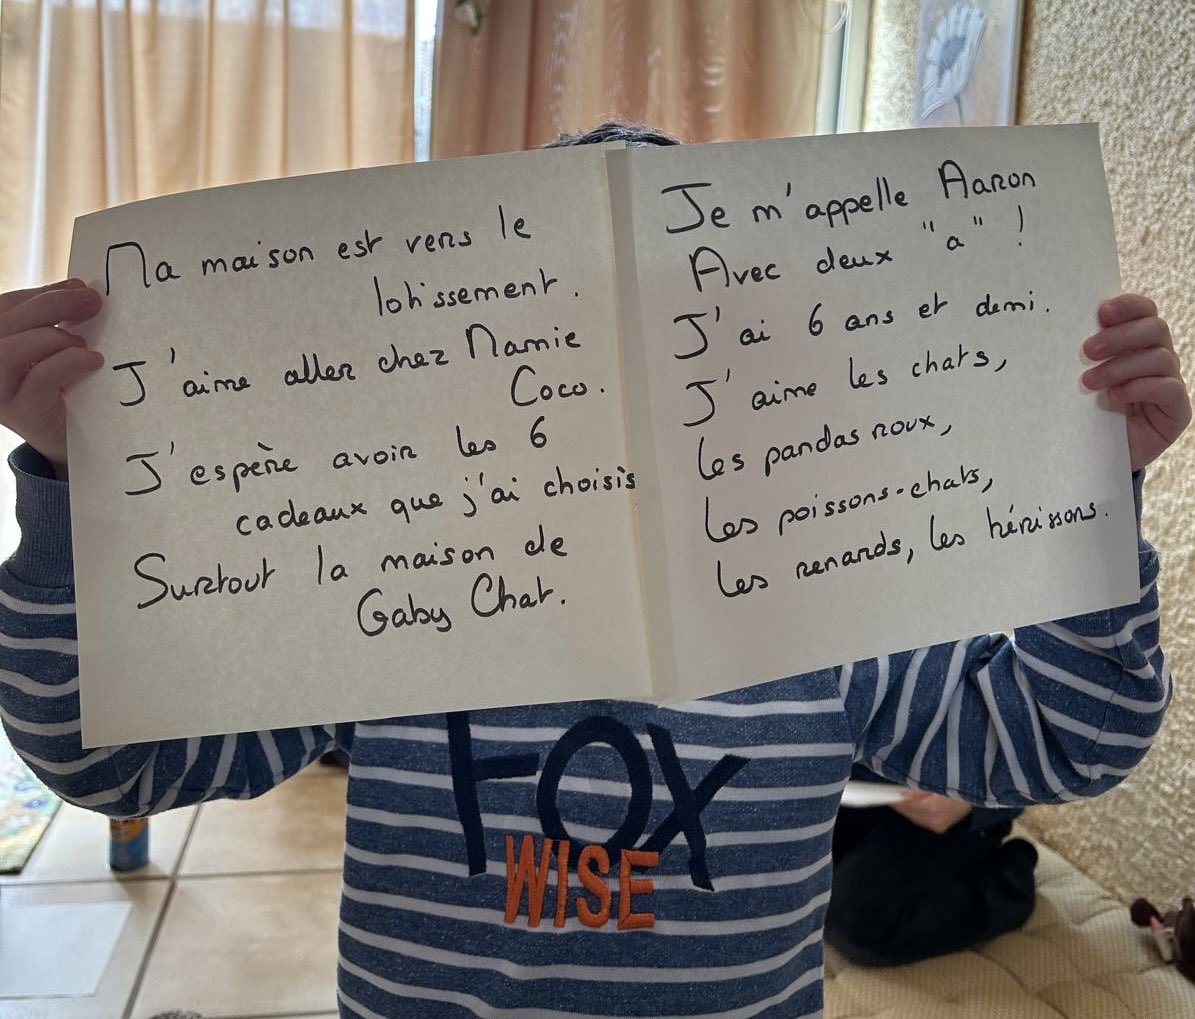 Ma maison est vers le
lotissement.
J'aime aller chez Mamie
Coco.
J'espère avoir les 6
cadeaux que j'ai choisis
Surtout la maison de
Gaby Chat.
Je m'appelle Aaron
Avec deux "a" !
J'ai 6 ans et demi.
J'aime les chats,
les pandas roux,
les poissons-chats,
les renards, les hérissons.
FOX
WISE